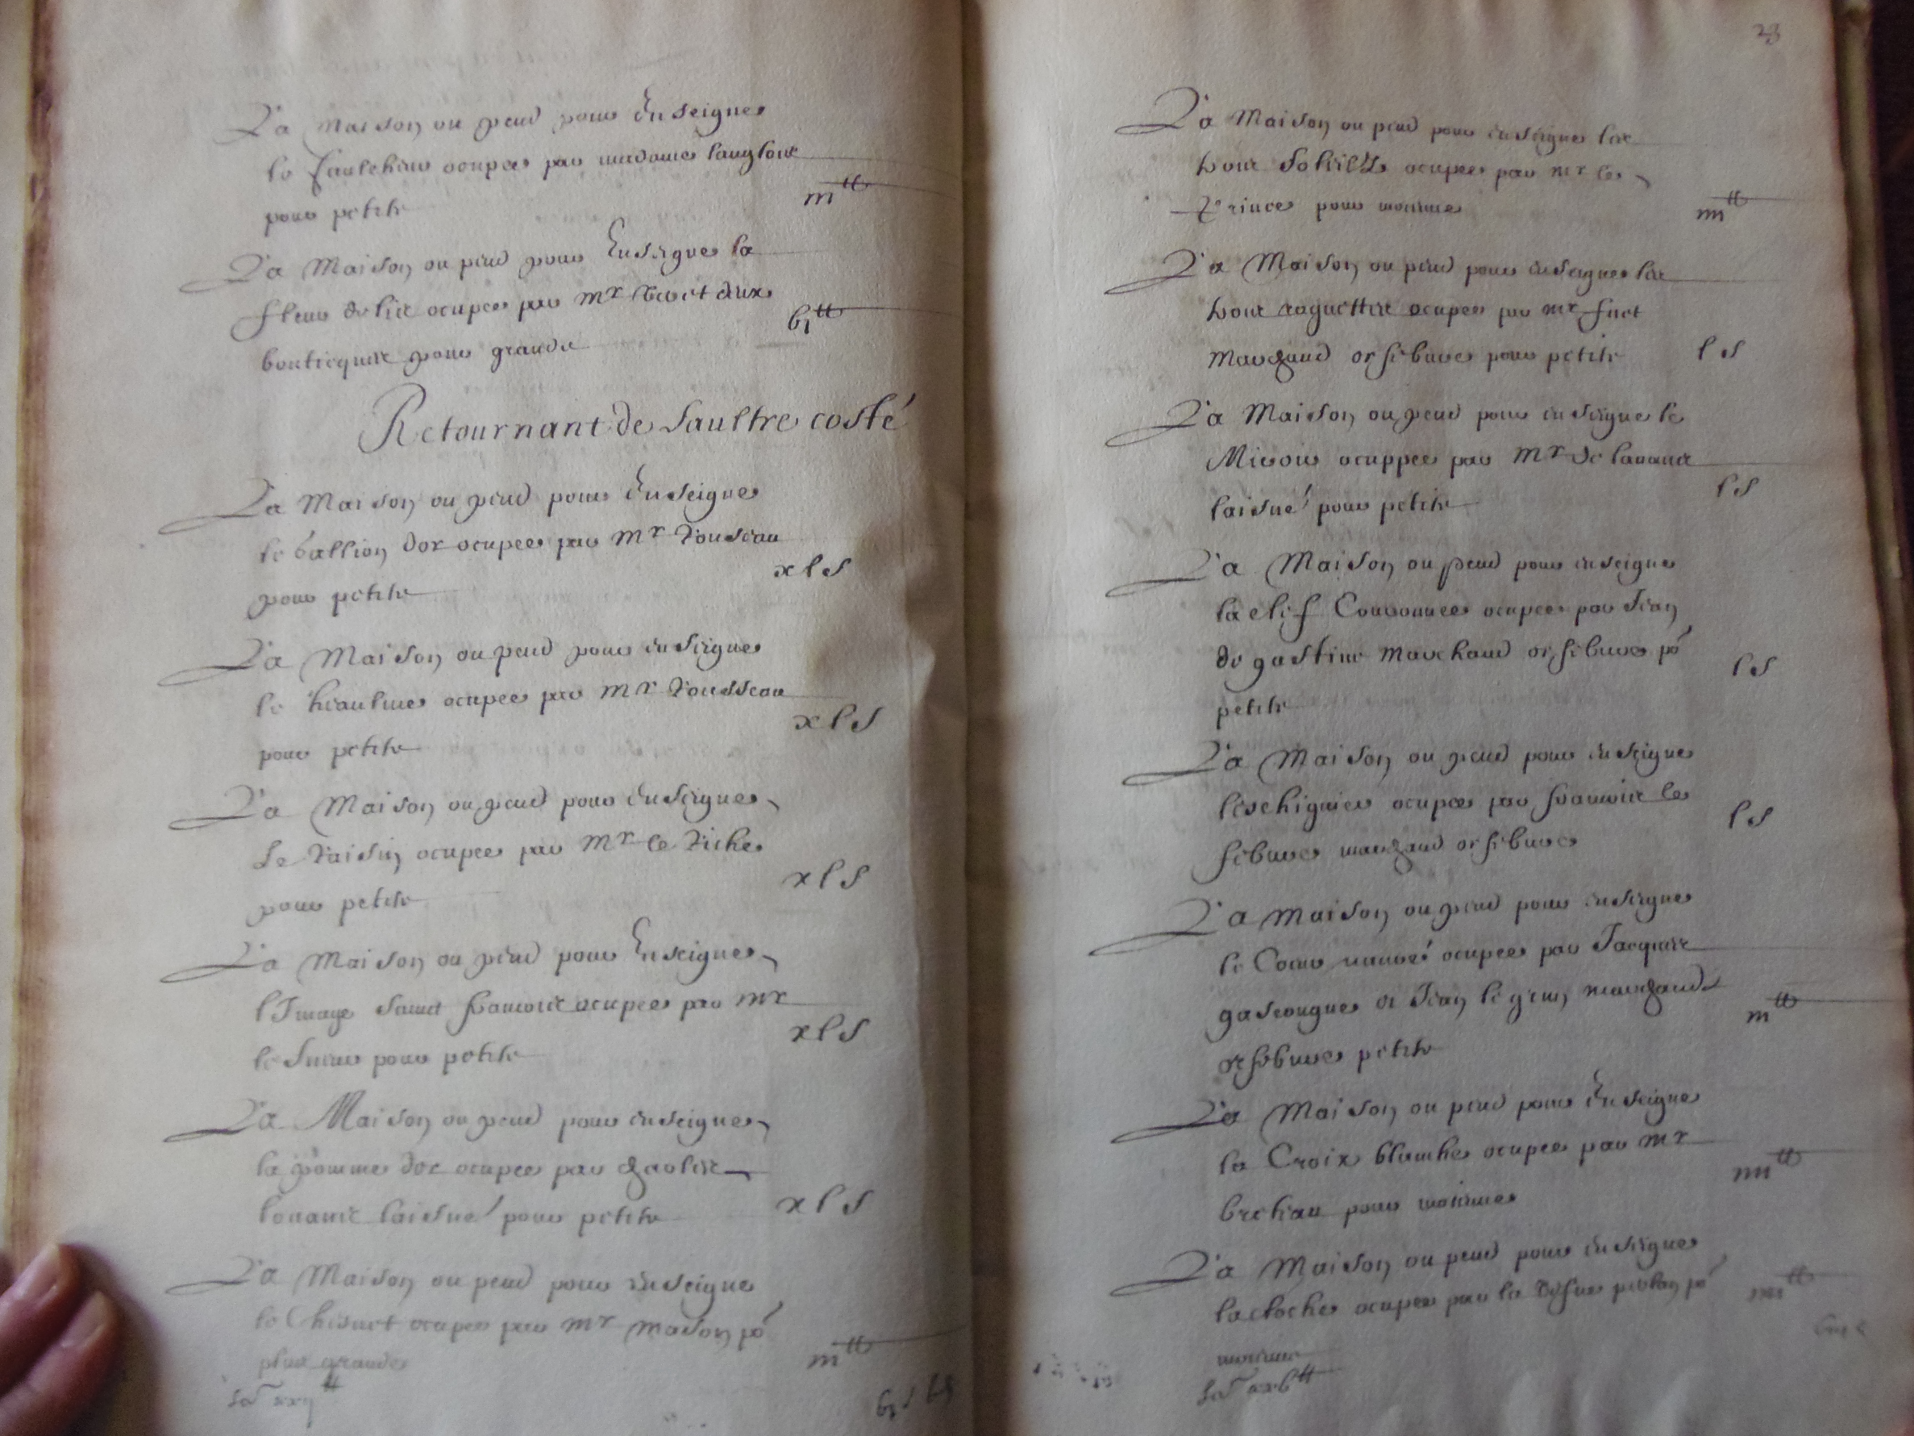 La Maison ou pend pour Enseigne
le faulcheur ocupee par madame langlois
pour petite iii tt
La Maison ou pend pour Enseigne la
fleur de lis ocupee par Mr deux
bouticques pour grande vi tt
Retournant de laultre costé
La Maison ou pend pour Enseigne
le ballion dor ocupee par Mr Rousseau
pour petite xl s
La Maison ou pend pour enseigne
le heaulme ocupee par Mr Rousseau
pour petite xl s
La Maison ou pend pour Enseigne
Le Raisin ocupee par Mr le Riche
pour petite xl s
La Maison ou pend pour Enseigne
l'Image sainct francois ocupee par Mr
le pour petite xl s
La Maison ou pend pour enseigne
la pomme dor ocupee par charles
lovance laisné pour petite xl s
La Maison ou pend pour enseigne
le ocupee par Mr Mason po
plus grande iii tt
23
La Maison ou pend pour enseigne les
trois ocupee par Mr le
Prince pour moienne iiii tt
La Maison ou pend pour enseigne les
trois raquettes ocupee par Mr
Marchand orfebvre pour petite l s
La Maison ou pend pour enseigne le
Miroir ocuppee par Mr de
laisné pour petite l s
La Maison ou pend pour enseigne
la clef Couronnee ocupee par Jean
de gastine Marchand orfebvre po
petite l s
La Maison ou pend pour enseigne
leschiquier ocupee par francois le
febvre marchand orfebvre l s
La Maison ou pend pour enseigne
le Coeur navré ocupee par Jacques
gascongne et Jean le grin marchands
orfebvres petite iii tt
La Maison ou pend pour Enseigne
la Croix blanche ocupee par Mr
breteau pour moienne iiii tt
La Maison ou pend pour enseigne
la cloche ocupee par la vefve po
moienne iiii tt